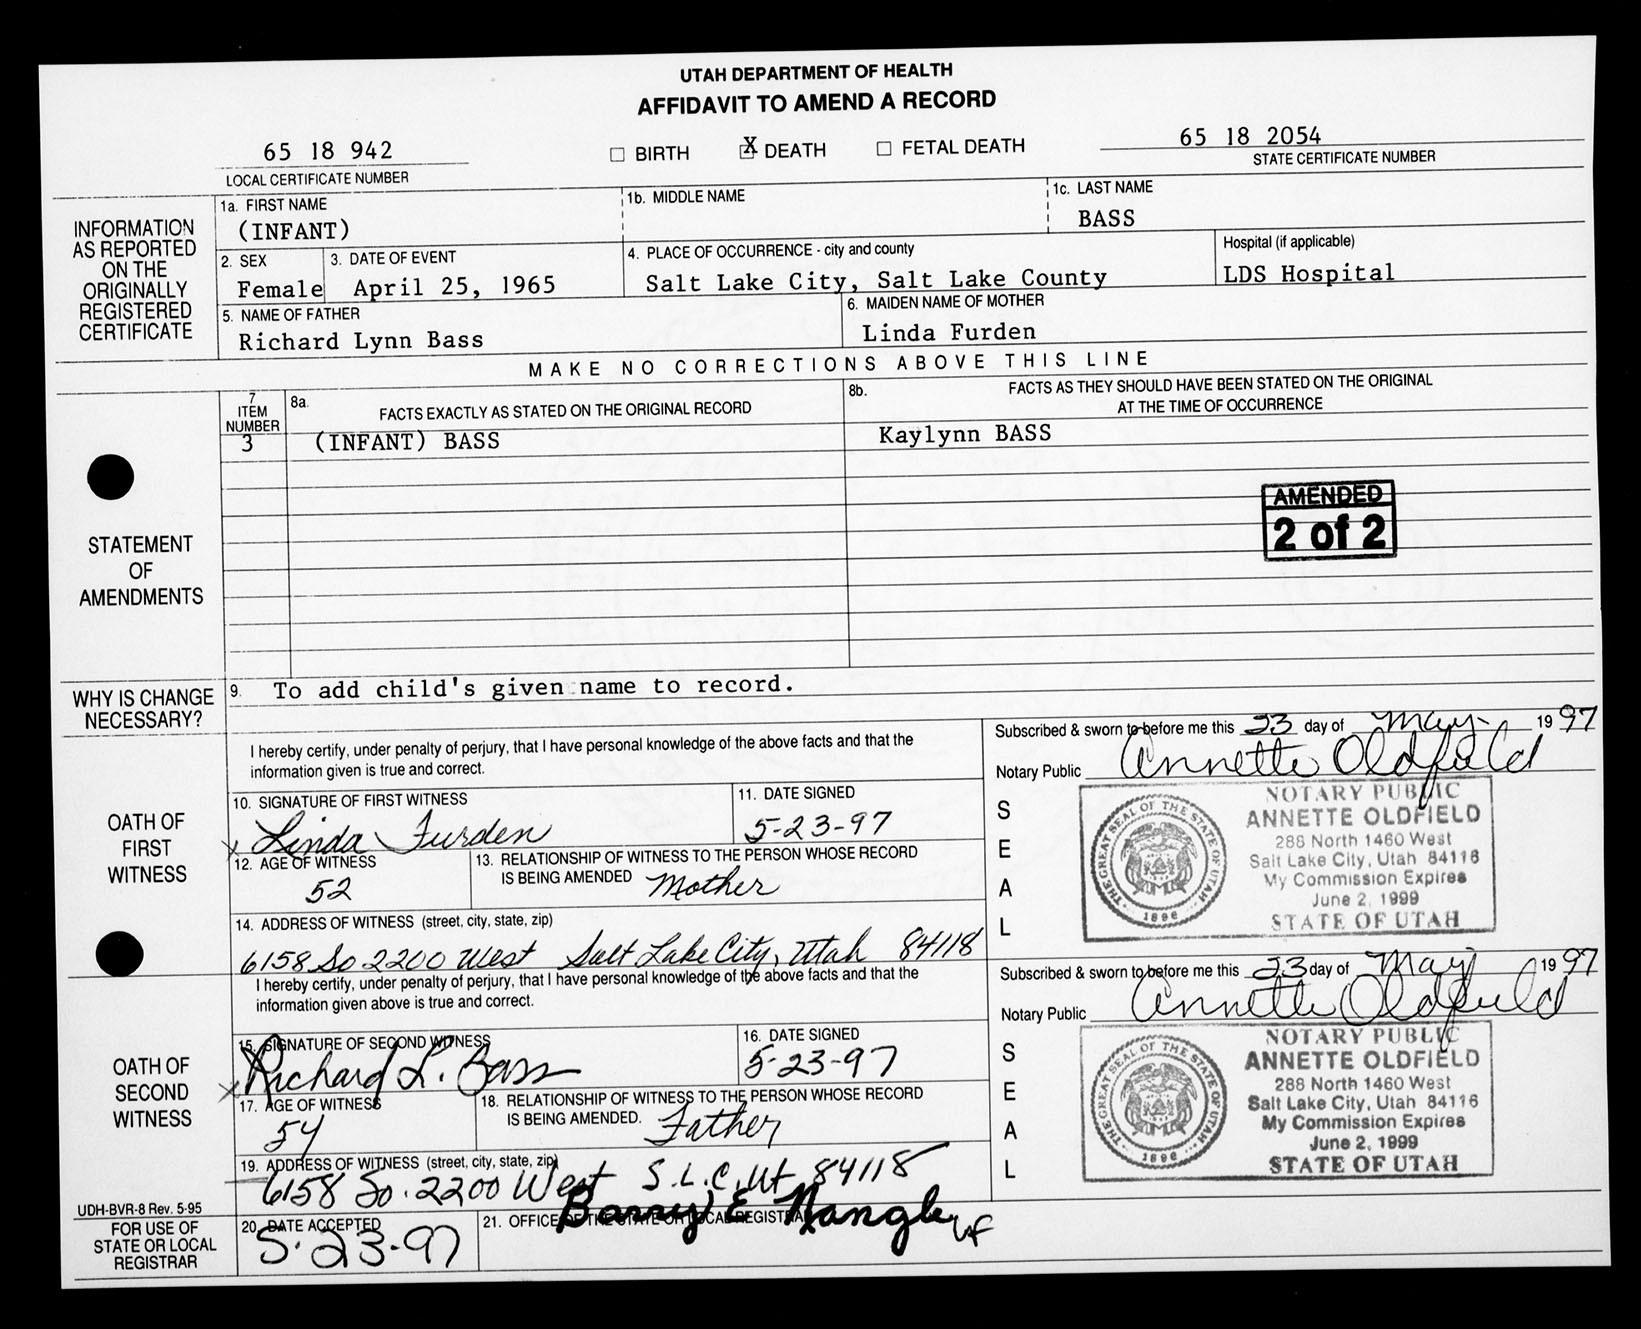 UTAH DEPARTMENT OF HEALTH
AFFIDAVIT TO AMEND A RECORD
65 18 942
LOCAL CERTIFICATE NUMBER
☐ BIRTH ☒ DEATH ☐ FETAL DEATH
65 18 2054
STATE CERTIFICATE NUMBER
INFORMATION
AS REPORTED
ON THE
ORIGINALLY
REGISTERED
CERTIFICATE
1a. FIRST NAME
(INFANT)
1b. MIDDLE NAME
1c. LAST NAME
BASS
2. SEX
Female
3. DATE OF EVENT
April 25, 1965
4. PLACE OF OCCURRENCE - city and county
Salt Lake City, Salt Lake County
Hospital (if applicable)
LDS Hospital
5. NAME OF FATHER
Richard Lynn Bass
6. MAIDEN NAME OF MOTHER
Linda Furden
MAKE NO CORRECTIONS ABOVE THIS LINE
STATEMENT
OF
AMENDMENTS
7
ITEM
NUMBER
3
8a.
FACTS EXACTLY AS STATED ON THE ORIGINAL RECORD
(INFANT) BASS
8b.
FACTS AS THEY SHOULD HAVE BEEN STATED ON THE ORIGINAL
AT THE TIME OF OCCURRENCE
Kaylynn BASS
AMENDED
2 of 2
WHY IS CHANGE
NECESSARY?
9. To add child's given name to record.
OATH OF
FIRST
WITNESS
I hereby certify, under penalty of perjury, that I have personal knowledge of the above facts and that the
information given is true and correct.
10. SIGNATURE OF FIRST WITNESS
x Linda Furden
11. DATE SIGNED
5-23-97
12. AGE OF WITNESS
52
13. RELATIONSHIP OF WITNESS TO THE PERSON WHOSE RECORD
IS BEING AMENDED Mother
14. ADDRESS OF WITNESS (street, city, state, zip)
6158 So 2200 West Salt Lake City, Utah 84118
Subscribed & sworn to before me this 23 day of May 1997
Notary Public Annette Oldfield
S
E
A
L
THE GREAT SEAL OF THE STATE OF UTAH
1896
NOTARY PUBLIC
ANNETTE OLDFIELD
288 North 1460 West
Salt Lake City, Utah 84116
My Commission Expires
June 2, 1999
STATE OF UTAH
OATH OF
SECOND
WITNESS
I hereby certify, under penalty of perjury, that I have personal knowledge of the above facts and that the
information given above is true and correct.
15. SIGNATURE OF SECOND WITNESS
x Richard L. Bass
16. DATE SIGNED
5-23-97
17. AGE OF WITNESS
54
18. RELATIONSHIP OF WITNESS TO THE PERSON WHOSE RECORD
IS BEING AMENDED. Father
19. ADDRESS OF WITNESS (street, city, state, zip)
6158 So. 2200 West S.L.C. Ut 84118
Subscribed & sworn to before me this 23 day of May 1997
Notary Public Annette Oldfield
S
E
A
L
THE GREAT SEAL OF THE STATE OF UTAH
1896
NOTARY PUBLIC
ANNETTE OLDFIELD
288 North 1460 West
Salt Lake City, Utah 84116
My Commission Expires
June 2, 1999
STATE OF UTAH
UDH-BVR-8 Rev. 5-95
FOR USE OF
STATE OR LOCAL
REGISTRAR
20. DATE ACCEPTED
5-23-97
21. OFFICE OF THE STATE OR LOCAL REGISTRAR
Barry E Nangle